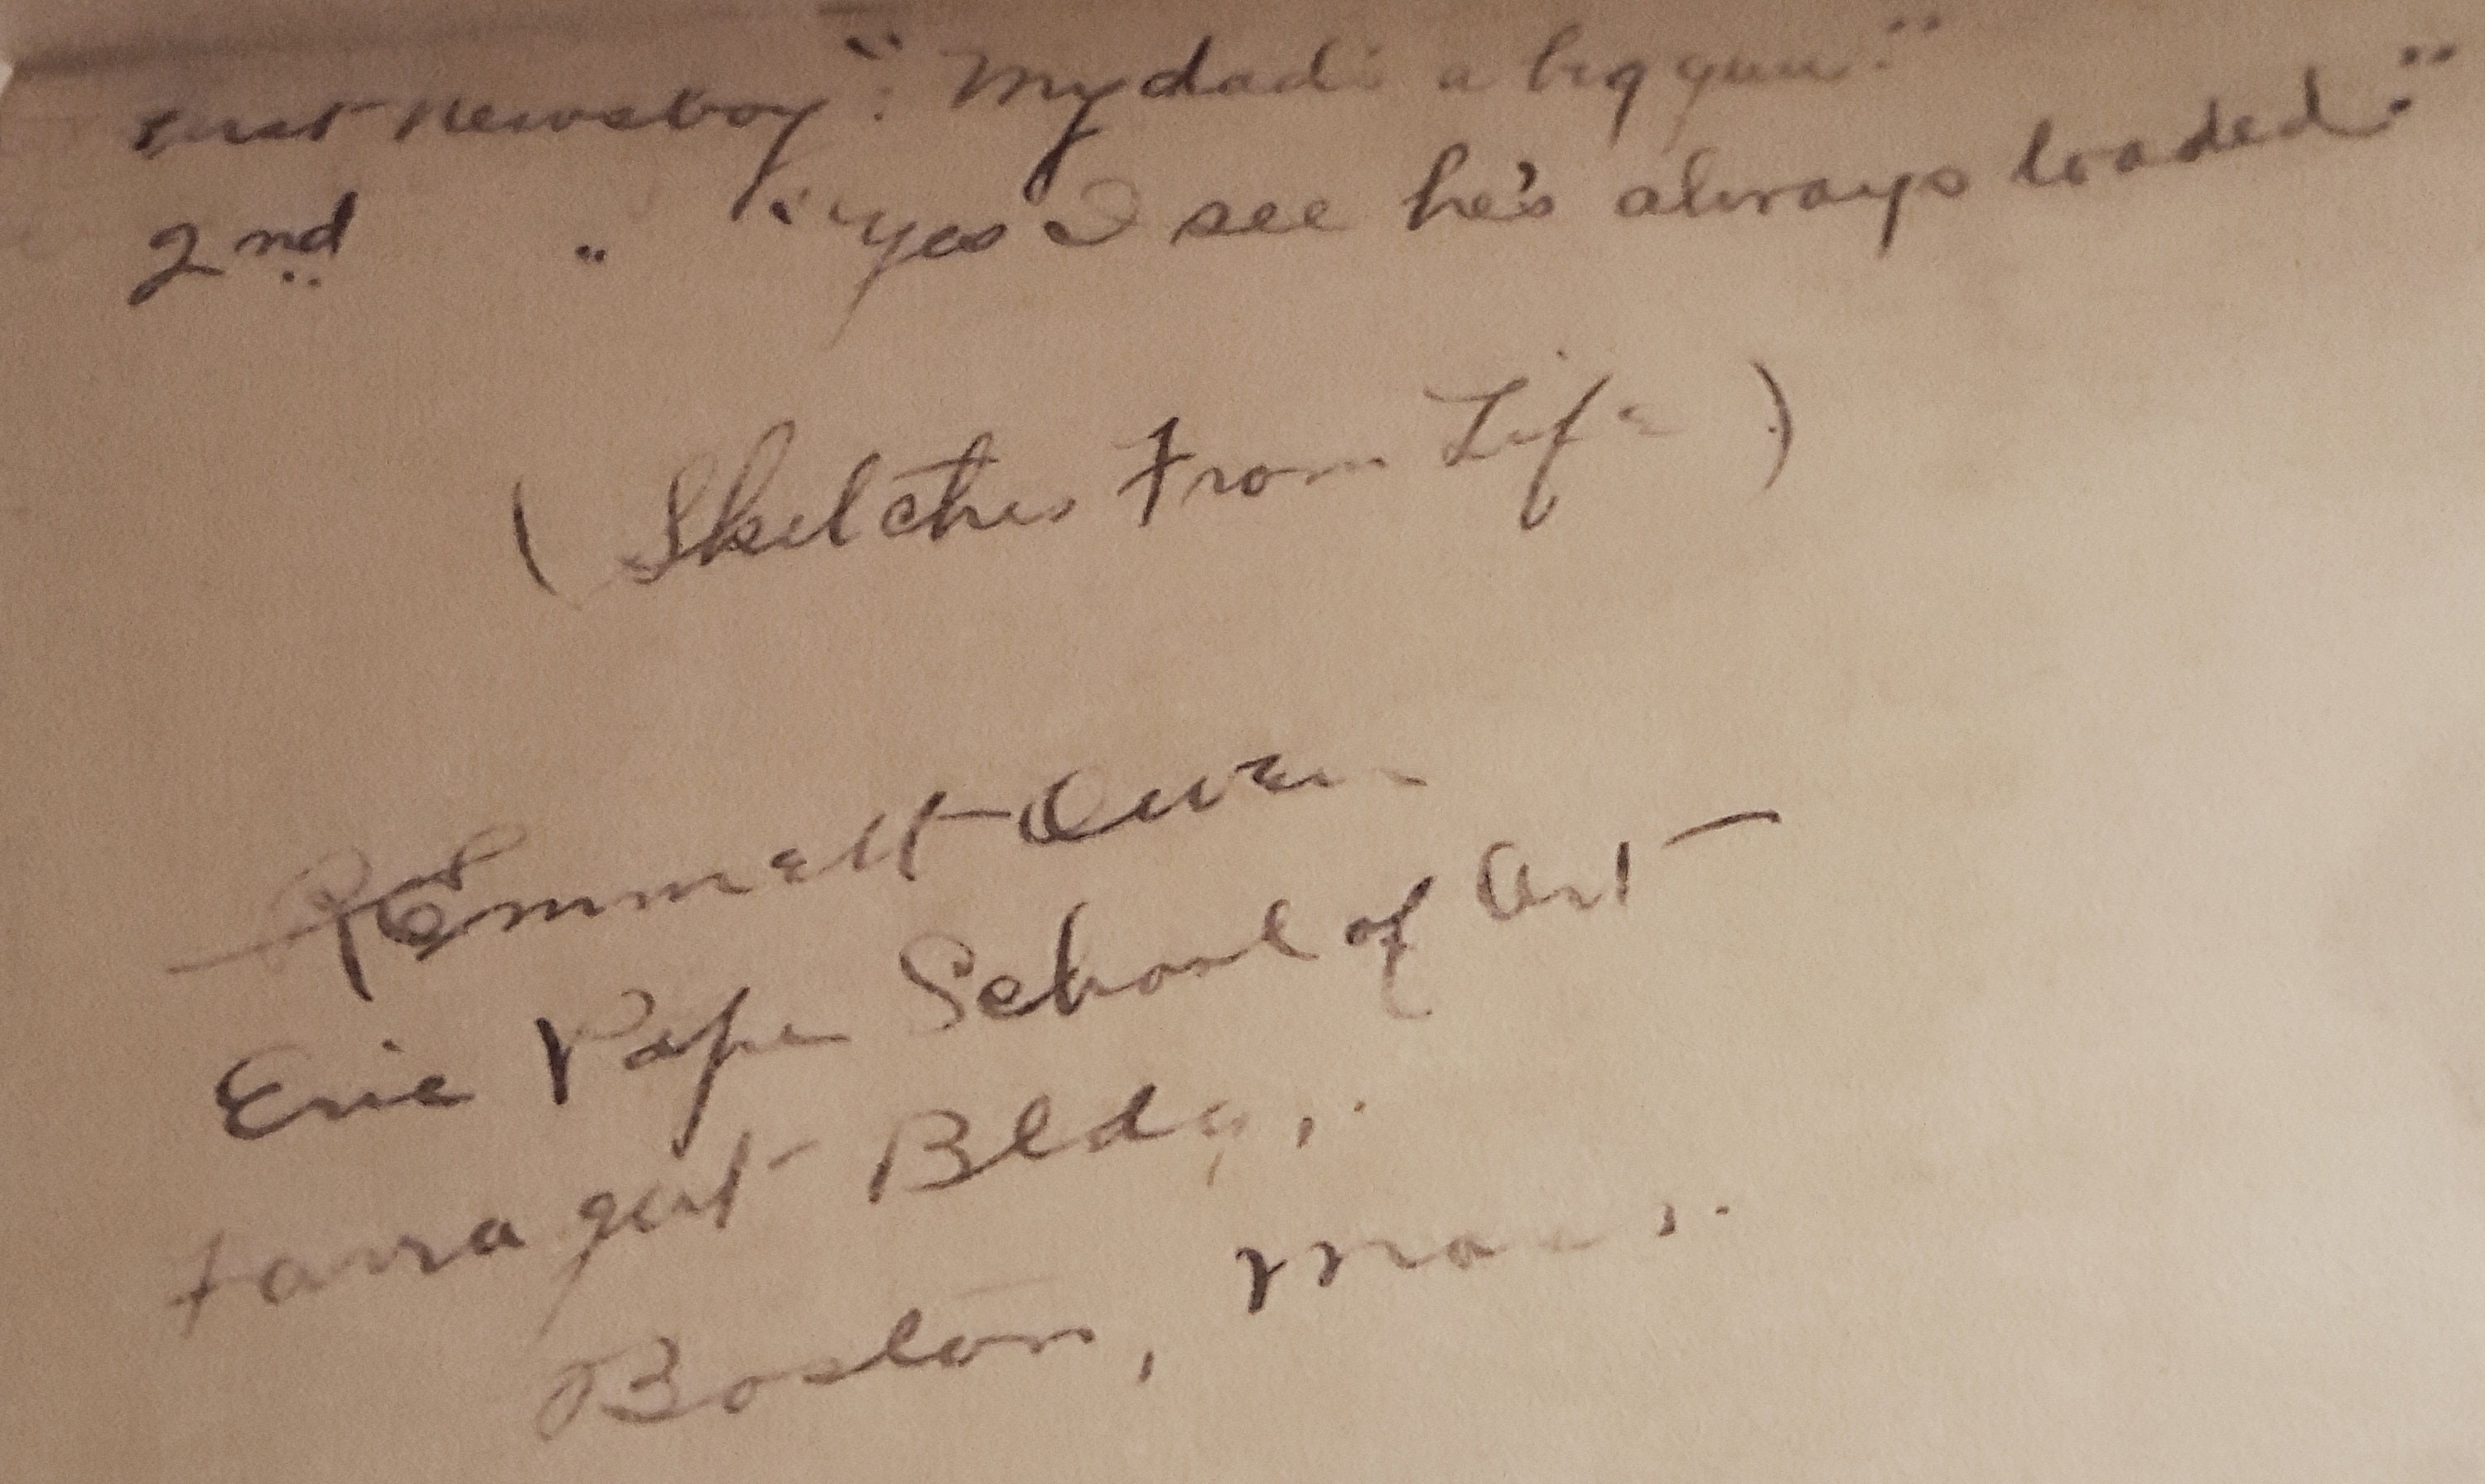 First Newsboy: "My dad's a big gun."
2nd " "Yes I see he's always loaded."
(Sketches From Life)
R Emmett Owen
Eric Pape School of Art
Farragut Bldg.,
Boston, Mass.